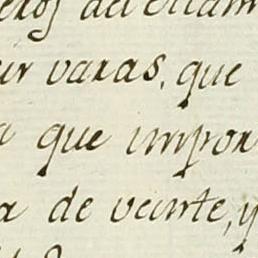 del
varas, que
que impor
de veinte, y